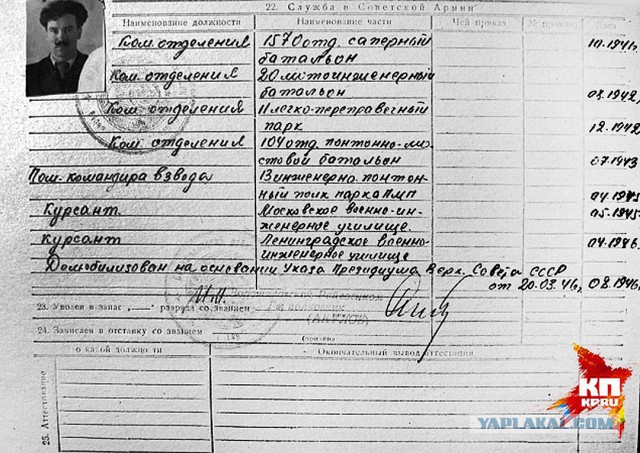 22. Служба в Советской Армии
Наименование должности Наименование части Чей приказ № приказа Дата
Ком. отделения 1570 отд. саперный 10.1941г.
батальон
Ком. отделения 20 мотоинженерный
батальон 03.1942г.
Ком. отделения 11 легко-переправочный
парк 12.1942г.
Ком. отделения 104 отд. понтонно-мо-
стовой батальон 07.1943
Пом. командира взвода 13 инженерно-понтон-
ный полк парка ПМП 04.1945
Курсант. Московское военно-ин- 05.1945.
женерное училище.
Курсант Ленинградское военно- 04.1946.
инженерное училище
Демобилизован на основании Указа Президиума Верх. Совета СССР
от 20.03.46г. 08.1946г.
23. Уволен в запас „ “ разряда со званием
24. Зачислен в отставку со званием
О какой должности Окончательный вывод аттестации
25. Аттестование
КП
KP.RU
YAPLAKAL.COM